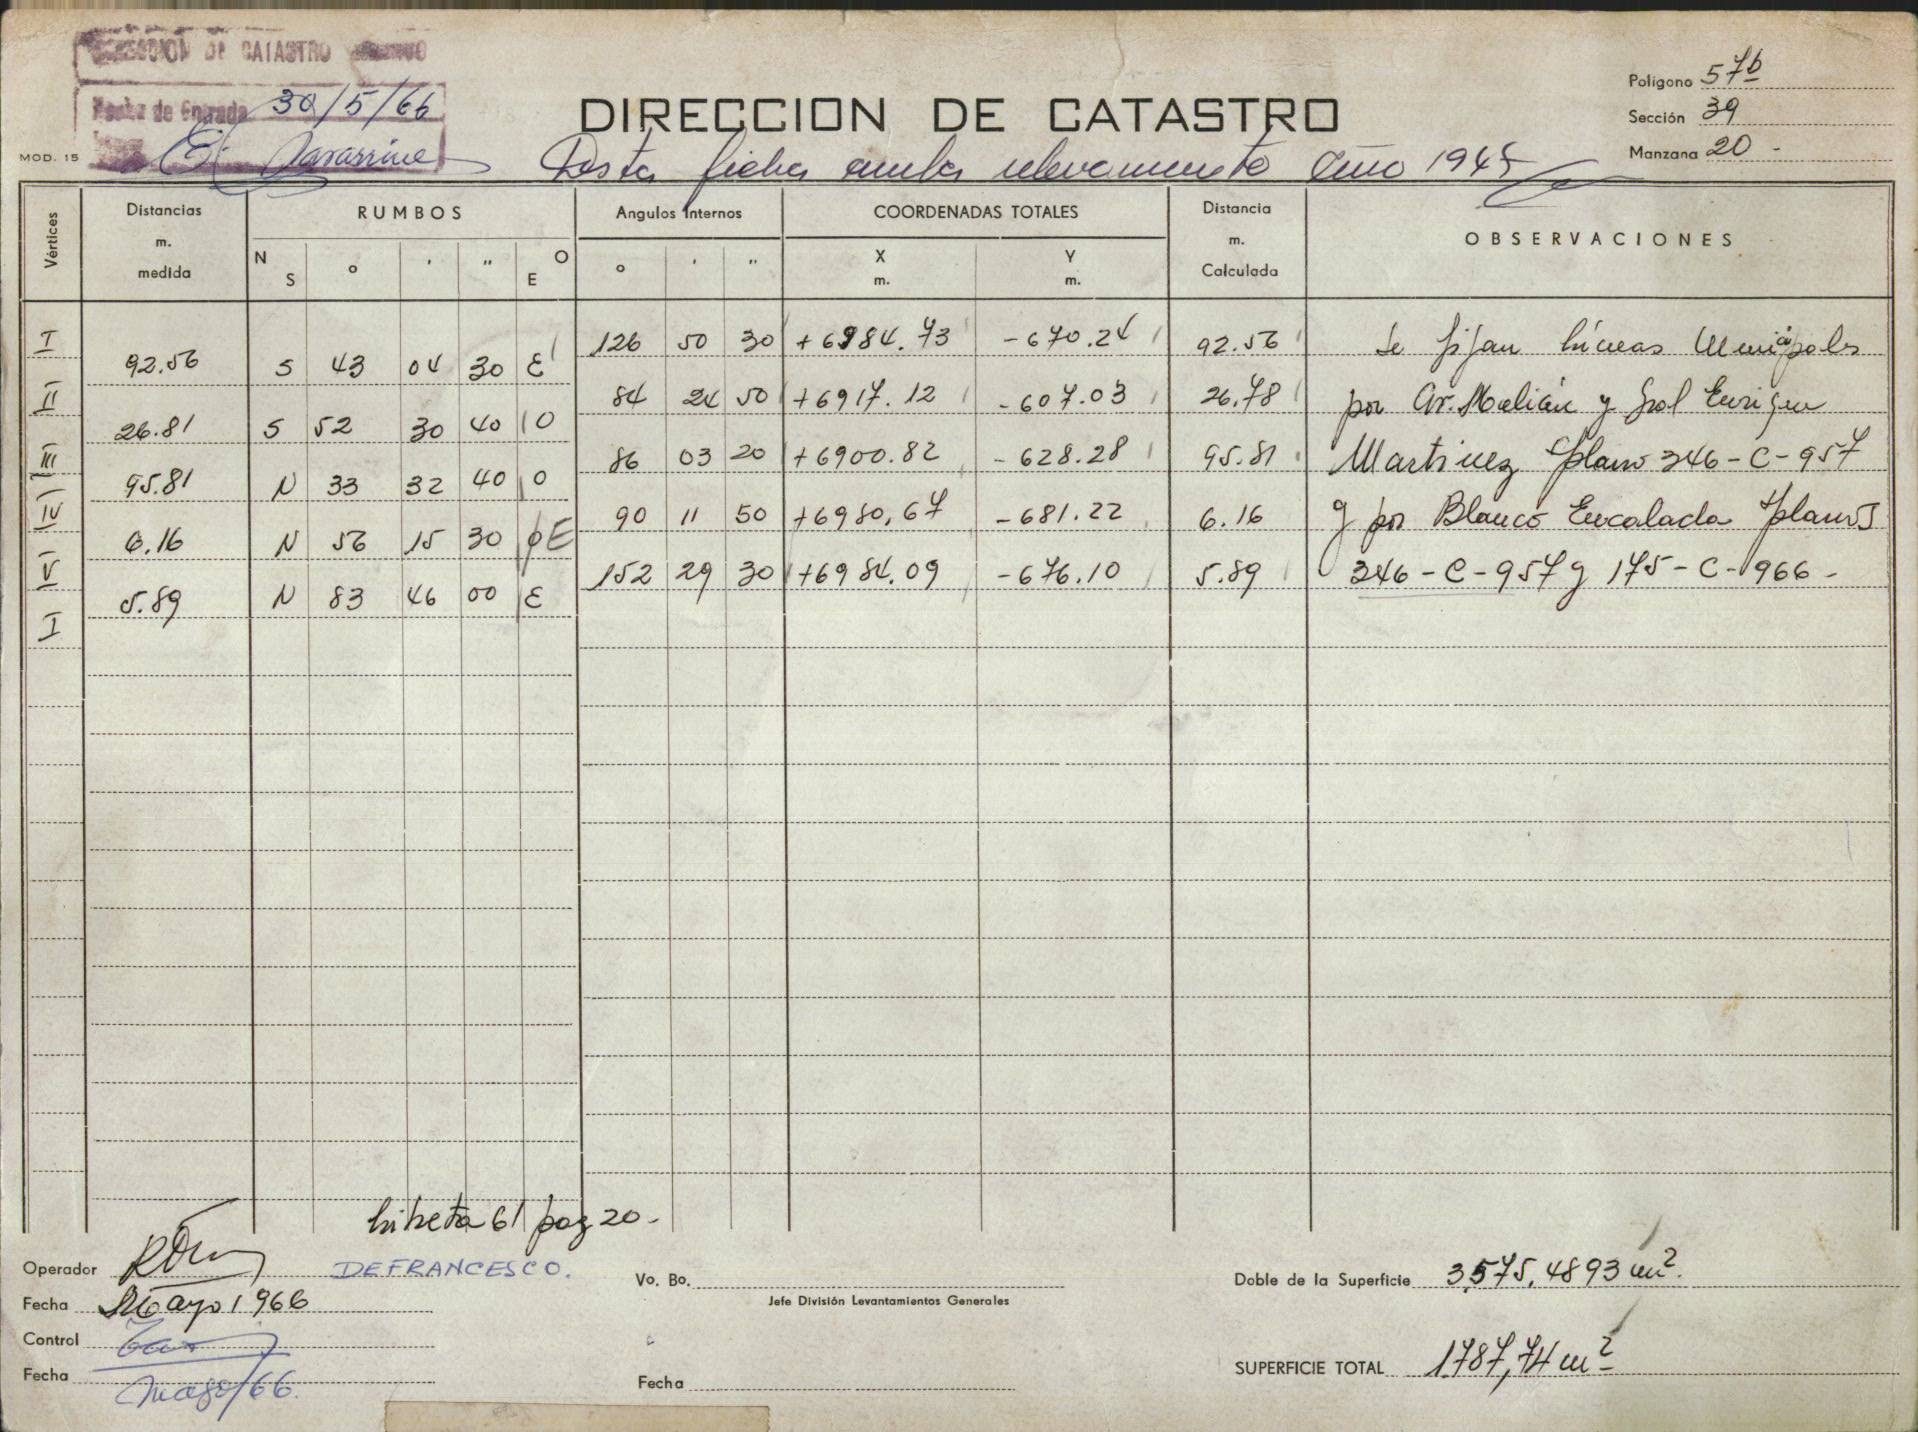 DIRECCION DE CATASTRO
Fecha de Entrada 30/5/66
MOD. 15
DIRECCION DE CATASTRO
Esta ficha anula relevamiento Año 1945
Polígono 57b
Sección 39
Manzana 20 -
Vértices Distancias m. medida RUMBOS Angulos Internos COORDENADAS TOTALES Distancia m. Calculada OBSERVACIONES
N S ° ' " E O ° ' " X m. Y m.
I 126 50 30 +6984.73 -670.24 92.56 Se fijan Líneas Municipales
92.56 S 43 04 30 E
II 84 24 50 +6917.12 -607.03 26.78 por Av. Melián y Gral Enrique
26.81 S 52 30 40 O
III 86 03 20 +6900.82 -628.28 95.81 Martinez plano 346-C-957
95.81 N 33 32 40 O
IV 90 11 50 +6980,67 -681.22 6.16 y por Blanco Encalada planos
6.16 N 56 15 30 E
V 152 29 30 +6984.09 -676.10 5.89 346-C-957 y 175-C-966 -
5.89 N 83 46 00 E
I
Libreta 61 pag 20 -
Operador DEFRANCESCO.
Fecha Mayo 1966
Control
Fecha mayo/66.
Vo. Bo.
Jefe División Levantamientos Generales
Fecha
Doble de la Superficie 3,575,4893 m².
SUPERFICIE TOTAL 1.787,74 m²